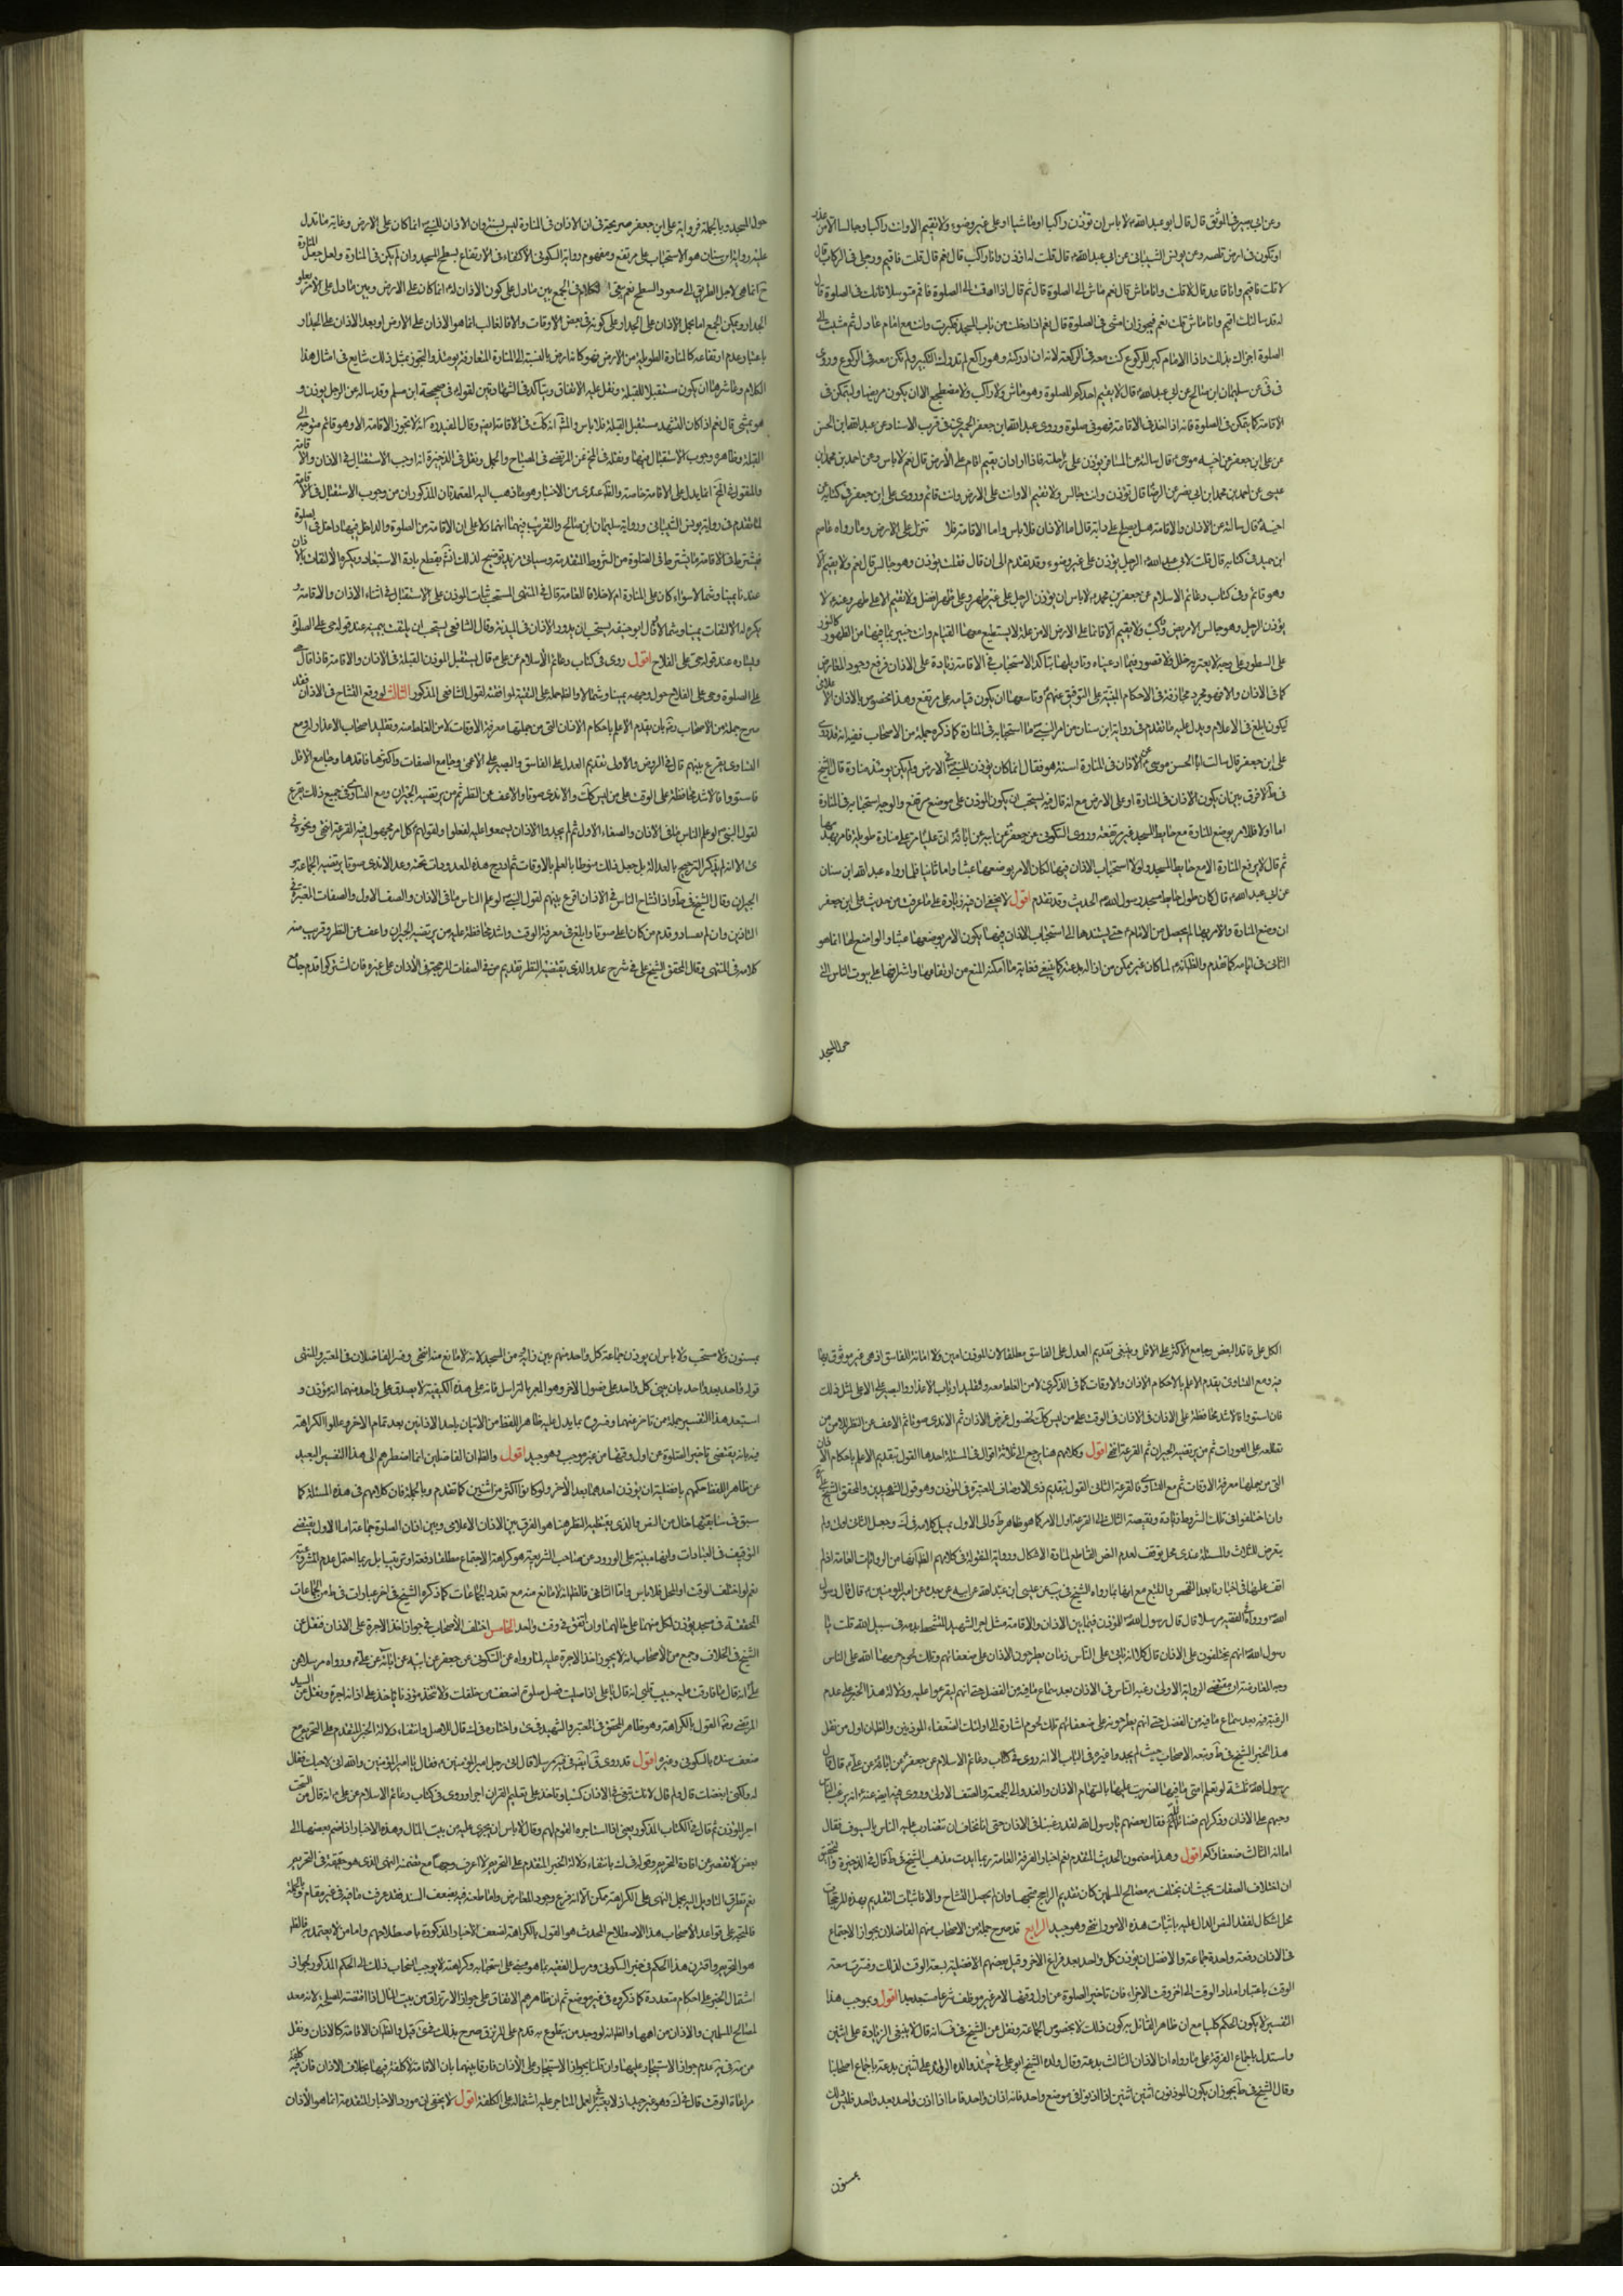 وعن ابى بصير فى الموثق قال قال ابو عبد الله ع لا باس ان تؤذن راكبا او ماشيا او على غير وضوء ولا تقيم الا وانت راكب او جالس الا من عذر
او تكون فى ارض ملصه وعن يونس الشيبانى عن ابى عبد الله ع قال قلت له اؤذن وانا راكب قال نعم قال قلت فاقيم ورجلى فى الركاب قال
لا قلت فاقيم وانا قاعد قال لا قلت وانا ماش قال نعم ماش الى الصلوة قال ثم قال اذا اقمت الصلوة فاقم مترسلا فانك فى الصلوة قال
له قد سالتك اقيم وانا ماش قلت نعم فيجوز ان امشى فى الصلوة قال نعم اذا دخلت من باب المسجد فكبرت وانت مع امام عادل ثم مشيت الى
الصلوة اجزاك ذلك واذا الامام كبر للركوع كنت معه فى الركعة لانه ان ادركته وهو راكع لم تدرك التكبير لم تكن معه فى الركوع وروى
فى فى عن سليمان ابن صالح عن ابى عبد الله ع قال لا يقيم احدكم الصلوة وهو ماش ولا راكب ولا مضطجع الا ان يكون مريضا وليتمكن فى
الاقامة كما يتمكن فى الصلوة فانه اذا اخذ فى الاقامة فهو فى صلوة وروى عبد الله ابن جعفر الحميرى فى قرب الاسناد عن عبد الله ابن الحسن
عن على ابن جعفر عن اخيه موسى ع قال سالته عن المسافر يؤذن على راحلته فاذا اراد ان يقيم اقام على الارض قال نعم لا باس وعن احمد بن محمد ابن
عيسى عن احمد بن محمد ابن ابى نصر عن الرضا قال تؤذن وانت جالس ولا تقيم الا وانت على الارض وانت قائم وروى على ابن جعفر فى كتابه عن
اخيه قال سالته عن الاذان والاقامة هل يصلح على دابة قال اما الاذان فلا باس واما الاقامة فلا تنزل على الارض ومثله رواه عاصم
ابن حميد فى كتابه قال قلت لابى عبد الله ع الرجل يؤذن على غير وضوء وقد تقدم الى ان قال فقلت يؤذن وهو جالس قال نعم ولا يقيم الا
وهو قائم وفى كتاب دعائم الاسلام عن جعفر بن محمد ع لا باس ان يؤذن الرجل على غير طهر وعلى طهر افضل ولا يقيم الا على طهر وعنه ع لا
يؤذن الرجل وهو جالس الا مريض وراكب ولا يقيم الا قائما على الارض الا من علة لا يستطيع معها القيام وانت خبير بما فيها من الظهور كالنور
على السطور على وجه لا يعتريه خلل ولا قصور فيما ادعيناه وتاويلها بتاكد الاستحباب فى الاقامة زيادة على الاذان فرع وجود المعارض
كما فى الاذان والا فهو مجرد مجازفة فى الاحكام المبنية على التوقيف عنهم وتاسعها ان يكون قيامه على مرتفع وهذا مخصوص بالاذان الاعلامى
ليكون ابلغ فى الاعلام ويدل عليه ما تقدم فى رواية ابن سنان من امر النبى ص اما استحبابه فى المنارة كما ذكره جملة من الاصحاب ففيه انه قد روى
على ابن جعفر قال سالت ابا الحسن موسى ع عن الاذان فى المنارة اسنة هو فقال انما كان يؤذن للنبى ص فى الارض ولم يكن يومئذ منارة قال الشيخ
فى ط لا فرق بين ان يكون الاذان فى المنارة او على الارض مع انه قال فيه يستحب ان يكون المؤذن على موضع مرتفع والوجه استحبابه فى المنارة
اما اولا فللامر بوضع المنارة مع حائط المسجد غير مرتفعة وروى السكونى عن جعفر عن ابيه عن ابائه ان عليا ع مر على منارة طويلة فامر بهدمها
ثم قال لا يرفع المنارة الا مع حائط المسجد ولولا استحباب الاذان فيها لكان الامر بوضعها عبثا واما ثانيا فلما رواه عبد الله ابن سنان
عن ابى عبد الله ع قال كان طول حائط مسجد رسول الله ص الحديث وقد تقدم اقول لا يخفى ان فيه زيادة على ما عرفت من حديث على ابن جعفر
ان وضع المنارة والامر بها لم يحصل من الامام ع حتى يستند ها الى استحباب الاذان فيها ليكون الامر بوضعها عبثا والواضع لها انما هو
الثانى فى ايامه كما تقدم والظ انه ع لما كان غير متمكن من ازالة بدعته كما ينبغى فغاية ما امكنه المنع من ارتفاعها واشرافها على بيوت الناس الى
حول المسجد
حول المسجد وبالجملة فرواية على ابن جعفر صريحة فى ان الاذان فى المنارة ليس بسنة وان الاذان للنبى ص انما كان على الارض وغاية ما تدل
عليه رواية ابن سنان هو الاستحباب على مرتفع ومفهوم رواية السكونى الاكتفاء فى الارتفاع بسطح المسجد وان لم يكن فى المنارة ولعل جعل المنارة
ح انما هى لاجل الطريق الى صعود السطح نعم يبقى الكلام فى الجمع بين ما دل على كون الاذان له ص انما كان على الارض وبين ما دل على الامر بعلو
الجدار ويمكن الجمع اما بحمل الاذان على الجدار على كونه فى بعض الاوقات والا فالغالب انما هو الاذان على الارض او بعد الاذان على الجدار
باعتبار عدم ارتفاعه كالمنارة الطويلة من الارض فهو كانه ارض بالنسبة الى المنارة المتعارفة يومئذ والتجوز بمثل ذلك شايع فى امثال هذا
الكلام وعاشرها ان يكون مستقبلا للقبلة ونقل عليه الاتفاق ويتاكد فى الشهادتين لقوله فى صحيحة ابن مسلم وقد ساله عن الرجل يؤذن و
هو يمشى قال نعم اذا كان التشهد مستقبل القبلة فلا باس والمش انه كذلك فى الاقامة ايضا وقال المفيد ره انه لا يجوز الاقامة الا وهو قائم متوجه الى
القبلة وظاهره وجوب الاستقبال فيها ونقله فى المخ عن المرتضى فى المصباح والجمل ونقل فى الذخيرة انه اوجب الاستقبال فى الاذان والاقامة
والمنقول فى المخ انما يدل على الاقامة خاصة والظ عندى من الاخبار هو ما ذهب اليه المعتمدان المذكوران من وجوب الاستقبال فى الاقامة
لما تقدم فى رواية يونس الشيبانى ورواية سليمان ابن صالح والتقريب فيهما انهما دلا على ان الاقامة من الصلوة والداخل فيها داخل فى الصلوة
فيشترط فى الاقامة ما يشترط فى الصلوة من الشروط المتقدمة وسياتى مزيد توضيح لذلك انش بقطع مادة الاستبعاد ويكره الالتفات بالاذان
عندنا يمينا وشمالا سواء كان على المنارة ام لا خلافا للعامة قال فى المنتهى المستحب ثبات المؤذن على الاستقبال فى اثناء الاذان والاقامة و
يكره له الالتفات يمينا وشمالا قال ابو حنيفة يستحب ان يدور الاذان فى المئذنة وقال الشافعى يستحب ان يلتفت يمينه عند قوله حى على الصلوة
ويساره عند قوله حى على الفلاح اقول روى فى كتاب دعائم الاسلام عن على ع قال يستقبل المؤذن القبلة فى الاذان والاقامة فاذا قال حى
على الصلوة وحى على الفلاح حول وجهه يمينا وشمالا والظ حمله على التقية لموافقته لقول الشافعى المذكور الثالث لو وقع التشاح فى الاذان فقد
صرح جملة من الاصحاب رض بان يقدم الاعلم باحكام الاذان التى من جملتها معرفة الاوقات لامن الغلط منه وتقليد اصحاب الاعذار له ومع
التساوى يقرع بينهم قال فى الروض والاولى تقديم العدل على الفاسق والبصير على الاعمى وجامع الصفات واكثرها فاقدها وجامع الاقل
فاستووا فالاشد محافظة على الوقت على من ليس كذلك والاندى صوتا والاعف عن النظر ثم من يرتضيه الجيران ومع التساوى فى جميع ذلك يقرع
لقول النبى ص لو علم الناس ما فى الاذان والصف الاول ثم لم يجدوا الا ان يستهموا عليه لفعلوا ولقولهم كل امر مجهول فيه القرعة انتهى ونحوه فى
الجيران وقال الشيخ فى ط واذا تشاح الناس فى الاذان اقرع بينهم لقول النبى ص لو علم الناس ما فى الاذان والصف الاول والصفات المعتبرة فى
كلامه فى المنتهى وقال المحقق الشيخ على فى شرح عد والذى يقتضيه النظر تقديم من فيه الصفات المرجحة فى الاذان على غيره فان اشتركوا قدم جامع
الكل على فاقد البعض وجامع الاكثر على الاقل وينبغى تقديم العدل على الفاسق مطلقا لان المؤذن امين ولا امانة للفاسق اذ هى غير موثوق بها
فيه ومع التساوى يقدم الاعلم بالاحكام الاذان والاوقات كما فى الذكرى لامن الغلط معه وتقليد ارباب الاعذار والبصير على الاعمى لمثل ذلك
فان استووا فالاشد محافظة على الاذان فى الوقت على من ليس كذلك لحصول غرض الاذان ثم الاندى صوتا ثم الاعف عن النظر للامن من
تطلعه على العورات ثم من يرتضيه الجيران ثم القرعة انتهى اقول وكلامهم هنا يرجع الى ثلاثة اقوال فى المسئلة احدها القول بتقديم الاعلم باحكام الاذان
التى من جملتها معرفة الاوقات ثم مع التساوى فالقرعة الثانى القول بتقديم ذى الاوصاف المعتبرة فى المؤذن وهو قول الشهيدين والمحقق الشيخ على
وان اختلفوا فى تلك الشروط زيادة ونقيصة الثالث الى القرعة اول الامر كما هو ظاهر ط والى الاول يميل كلامه فى ك وجعل الثانى اولى ولم
يتعرض للثالث والمسئلة عندى محل توقف لعدم النص القاطع لمادة الاشكال ورواية المنقولة فى كلامهم الظ انها من الروايات العامة اذ لم
اقف عليها فى اخبارنا بعد الفحص والتتبع مع انها بما رواه الشيخ فى يب عن عيسى ابن عبد الله عن ابيه عن جده عن امير المؤمنين ع قال قال رسول
الله ص ورواه الفقيه مرسلا قال قال رسول الله ص للمؤذن فيما بين الاذان والاقامة مثل اجر الشهيد المتشحط بدمه فى سبيل الله قلت يا
رسول الله ص انهم يختلفون على الاذان قال كلا انه ياتى على الناس زمان يطرحون الاذان على ضعفائهم وتلك لحوم حرمها الله على الناس
وجه المعارضة ان مقتضى الرواية الاولى رغبة الناس فى الاذان بعد سماع ما فيه من الفضل حتى انهم ليقرعوا عليه ودلالة هذا الخبر على عدم
الرغبة فيه بعد سماع ما فيه من الفضل حتى انهم يطرحونه على ضعفائهم
هذا الخبر الشيخ فى ط وتبعه الاصحاب حيث لم يجدوا غيره فى الباب الا انه روى فى كتاب دعائم الاسلام عن جعفر عن ابائه عن على ع قال قال
رسول الله ص ثلثة لو تعلم امتى ما فيها لضربت عليها بالسهام الاذان والغدو الى الجمعة والصف الاول وروى فيه ايضا عنه ع انه رغب الناس
وحثهم على الاذان وذكر لهم فضائله فقال بعضهم يا رسول الله لقد رغبتنا فى الاذان حتى انا نخاف ان تتضارب عليه الناس بالسيوف فقال
اما انه الثالث ضعفاءكم اقول وهذا مضمون الحديث المتقدم نعم اخبار القرعة العامة ربما ايدت مذهب الشيخ فى ط قال فى الذخيرة والتحقيق
ان اختلاف الصفات بحيث ان يختلف به مصالح المسلمين كان تقديم الراجح متجها وان لم يحصل التشاح والا فاثبات التقديم بهذه المرجحات
محل اشكال لفقد النص الدال عليه باثبات هذه الامور انتهى وهو جيد الرابع قد صرح جملة من الاصحاب منهم الفاضلان بجواز الاجتماع
فى الاذان دفعة واحدة جماعة والافضل ان يؤذن كل واحد بعد فراغ الاخر وقيل بعضهم الافضلية بسعة الوقت لذلك وفسرت سعة
الوقت باعتبار امداد الوقت الى اخر وقت الاجزاء فان تاخير الصلوة عن اول وقتها لامر غير موظف شرعا مستبعد جدا اقول وبموجب هذا
التفسير لا يكون الحكم كليا مع ان ظاهر القائل به كون ذلك لا بخصوص الجماعة ونقل عن الشيخ فى ف انه قال لا ينبغى الزيادة على اثنين
واستدل باجماع الفرقة على ما رواه ان الاذان الثالث بدعة وقال ولده الشيخ ابو على فى شرح نهاية والده الزايد على اثنين بدعة باجماع اصحابنا
وقال الشيخ فى ط يجوز ان يكون المؤذنون اثنين اثنين اذا اذنوا فى موضع واحد فانه اذان واحد فاما اذا اذن واحد بعد واحد فليس ذلك
بمسنون
بمسنون ولا مستحب ولا باس ان يؤذن جماعة كل واحد منهم بين زاوية من المسجد لانه لا مانع منه انتهى وفسر الفاضلان فى المعتبر والمنتهى
قوله واحد بعد واحد بان يبنى كل واحد على فصول الاخر وهو المعبر بالتراسل فانه على هذه الكيفية لا يصدق على واحد منهما انه مؤذن و
استبعد هذا التفسير جملة من تاخر عنهما وفسروه بما يدل عليه ظاهر اللفظ من الاتيان باحد الاذانين بعد تمام الاخر وعللوا الكراهة
فيه بانه يقتضى تاخير الصلوة عن اول وقتها من غير موجب وهو جيد اقول والظ ان الفاضلين انما اضطرهم الى هذا التفسير البعيد
عن ظاهر اللفظ حكمهم بافضلية ان يؤذن احدهما بعد الاخر ولو كانوا اكثر من اثنين كما تقدم وبالجملة فان كلامهم فى هذه المسئلة كما
سبق فى سابقتها خال من النص والذى يقتضيه النظر هنا هو الفرق بين الاذان الاعلامى وبين اذان الصلوة جماعة اما الاول يقتضى
التوقيف فى العبادات وانها مبنية على الورود عن صاحب الشريعة هو كراهة الاجتماع مطلقا دفعة او ترتيبا بل ربما احتمل عدم المشروعية
نعم لو اختلف الوقت او المحل فلا باس واما الثانى فالظ انه لا مانع منه مع تعدد الجماعات كما ذكره الشيخ فى اخر عبارات فى ط من الجماعات
المختلفة فى مسجد يؤذن لكل منهما على حالها وان اتفق فى وقت واحد الخامس اختلف الاصحاب فى جواز اخذ الاجرة على الاذان فنقل عن
الشيخ فى الخلاف وجمع من الاصحاب انه لا يجوز اخذ الاجرة عليه لما رواه عن السكونى عن جعفر عن ابيه عن ابائه عن على ع ورواه مرسلا عن
على ع انه قال ما فارقت عليه حبيب قلبى انه قال يا على اذا صليت فصل صلوة اضعف من خلفك ولا تتخذ مؤذنا ياخذ على اذانه اجرة ونقل عن السيد
المرتضى رض القول بالكراهة وهو ظاهر المحقق فى المعتبر والشهيد فى ى واختاره فى ك قال للاصل وانتفاء دلالة الخبر المتقدم على التحريم مع
ضعف سنده بالسكونى وغيره اقول قد روى فى الفقيه مرسلا قال اتى رجل امير المؤمنين ع فقال يا امير المؤمنين والله انى لاحبك فقال
له ولكنى ابغضك قال ولم قال لانك تبتغى فى الاذان كسبا وتاخذ على تعليم القران اجرا وروى فى كتاب دعائم الاسلام عن على ع انه قال من السحت
اجر المؤذن ثم قال فى الكتاب المذكور يعنى اذا استاجره القوم لهم وقال لا باس ان يجرى عليه من بيت المال وهذه الاخبار اذا ضم بعضها الى
بعض لا تقصر عن افادة التحريم وقوله فى ك بانتفاء دلالة الخبر المتقدم على التحريم لا اعرف وجهها مع تضمنه النهى الذى هو حقيقة فى التحريم
نعم تطرق التاويل اليه بحمل النهى على الكراهة ممكن الا انه فرع وجود المعارض واما طعنه فيه بضعف السند فقد عرفت ما فيه فى غير مقام وبالجملة
فالمتجه على قواعد الاصحاب هذا الاصطلاح المحدث هو القول بالكراهة لضعف الاخبار المذكورة باصطلاحهم واما من لا يعتمد فالظ
هو التحريم واقترن هذا الحكم فى خبر السكونى ومرسل الفقيه بما هو متفق على استحبابه وكراهته لا يوجب انسحاب ذلك الى الحكم المذكور لجواز
اشتمال الخبر على احكام متعددة كما ذكروه فى غير موضع ثم ان ظاهرهم الاتفاق على جواز الارتزاق من بيت المال اذا اقتضته المصلحة لانه معد
لمصالح المسلمين والاذان من اهمها والظ انه لو وجد من يتطوع به قدم على المرتزق صرح بذلك فى ى قيل والظ ان الاقامة كالاذان ونقل
عن يه فيه عدم جواز الاستيجار عليها وان قلنا بجواز الاستيجار على الاذان فارقا بينهما بان الاقامة لا كلفة فيها بخلاف الاذان فان فيه كلفة
مراعاة الوقت قال فى ك وهو غير جيد اذ لا يعتبر فى العمل المستاجر عليه اشتماله على الكلفة اقول لا يخفى ان مورد الاخبار المتقدمة انما هو الاذان